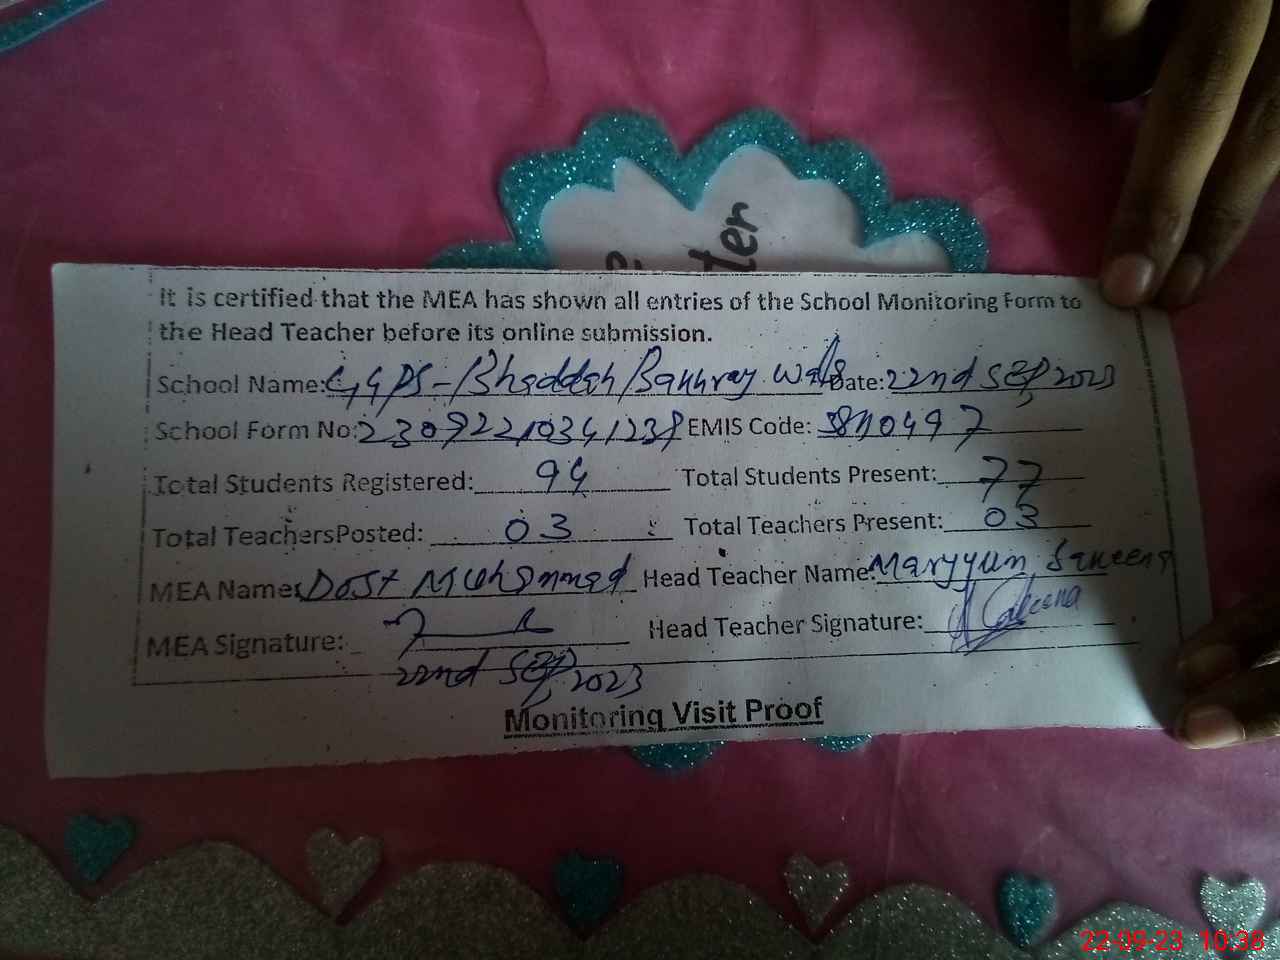 ter
It is certified that the MEA has shown all entries of the School Monitoring Form to
the Head Teacher before its online submission.
School Name: GGPS-Bhaddah/Bakhray Wala Date: 22nd SEP, 2023
School Form No: EMIS Code:
Total Students Registered: 94 Total Students Present: 77
Total TeachersPosted: 03 Total Teachers Present: 03
MEA Name: Dost Muhammad Head Teacher Name: Maryyum Sakeena
MEA Signature: Head Teacher Signature: Sakeena
22nd SEP, 2023
Monitoring Visit Proof
22-09-23 10:38